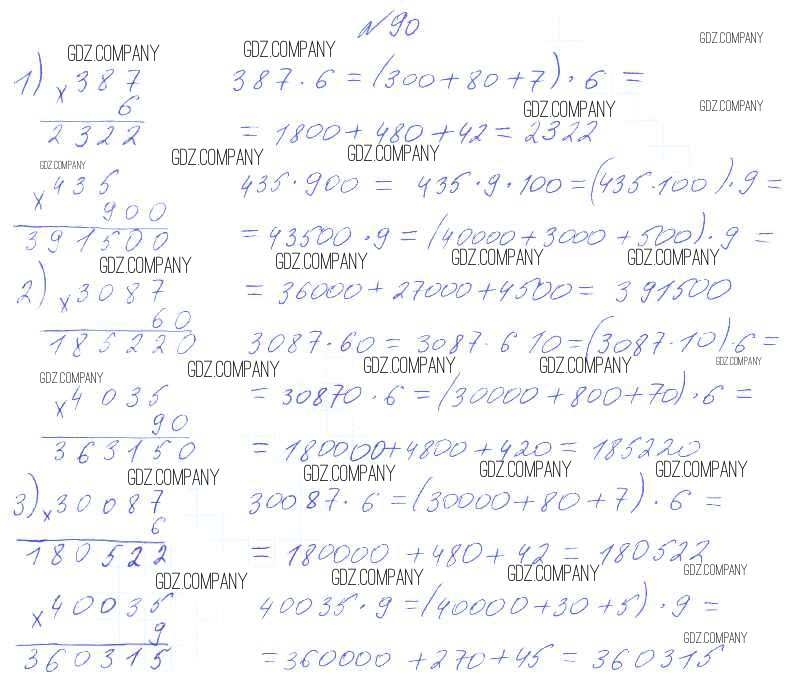 №90
GDZ.COMPANY GDZ.COMPANY GDZ.COMPANY
1) × 387 387 · 6 = (300 + 80 + 7) · 6 =
6 GDZ.COMPANY GDZ.COMPANY
2322 = 1800 + 480 + 42 = 2322
GDZ.COMPANY GDZ.COMPANY GDZ.COMPANY
× 435 435 · 900 = 435 · 9 · 100 = (435 · 100) · 9 =
900
391500 = 43500 · 9 = (40000 + 3000 + 500) · 9 =
GDZ.COMPANY GDZ.COMPANY GDZ.COMPANY GDZ.COMPANY
2) × 3087 = 36000 + 27000 + 4500 = 391500
60
185220 3087 · 60 = 3087 · 6 10 = (3087 · 10) · 6 =
GDZ.COMPANY GDZ.COMPANY GDZ.COMPANY GDZ.COMPANY GDZ.COMPANY
× 4035 = 30870 · 6 = (30000 + 800 + 70) · 6 =
90
363150 = 180000 + 4800 + 420 = 185220
GDZ.COMPANY GDZ.COMPANY GDZ.COMPANY GDZ.COMPANY
3) × 30087 30087 · 6 = (30000 + 80 + 7) · 6 =
6
180522 = 180000 + 480 + 42 = 180522
GDZ.COMPANY GDZ.COMPANY GDZ.COMPANY GDZ.COMPANY
× 40035 40035 · 9 = (40000 + 30 + 5) · 9 =
9 GDZ.COMPANY
360315 = 360000 + 270 + 45 = 360315